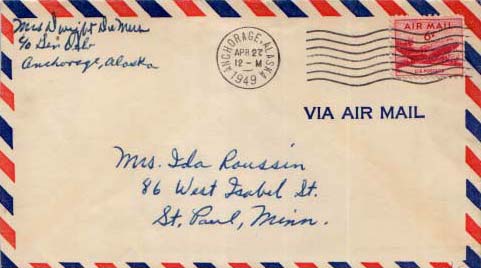 Mrs Dwight
c/o Gen
Anchorage, Alaska
ANCHORAGE, ALASKA
APR 27
12 - M
1949
AIR MAIL
6¢
U.S. POSTAGE
VIA AIR MAIL
Mrs. Ida Roussin
86 West Isabel St.
St. Paul, Minn.